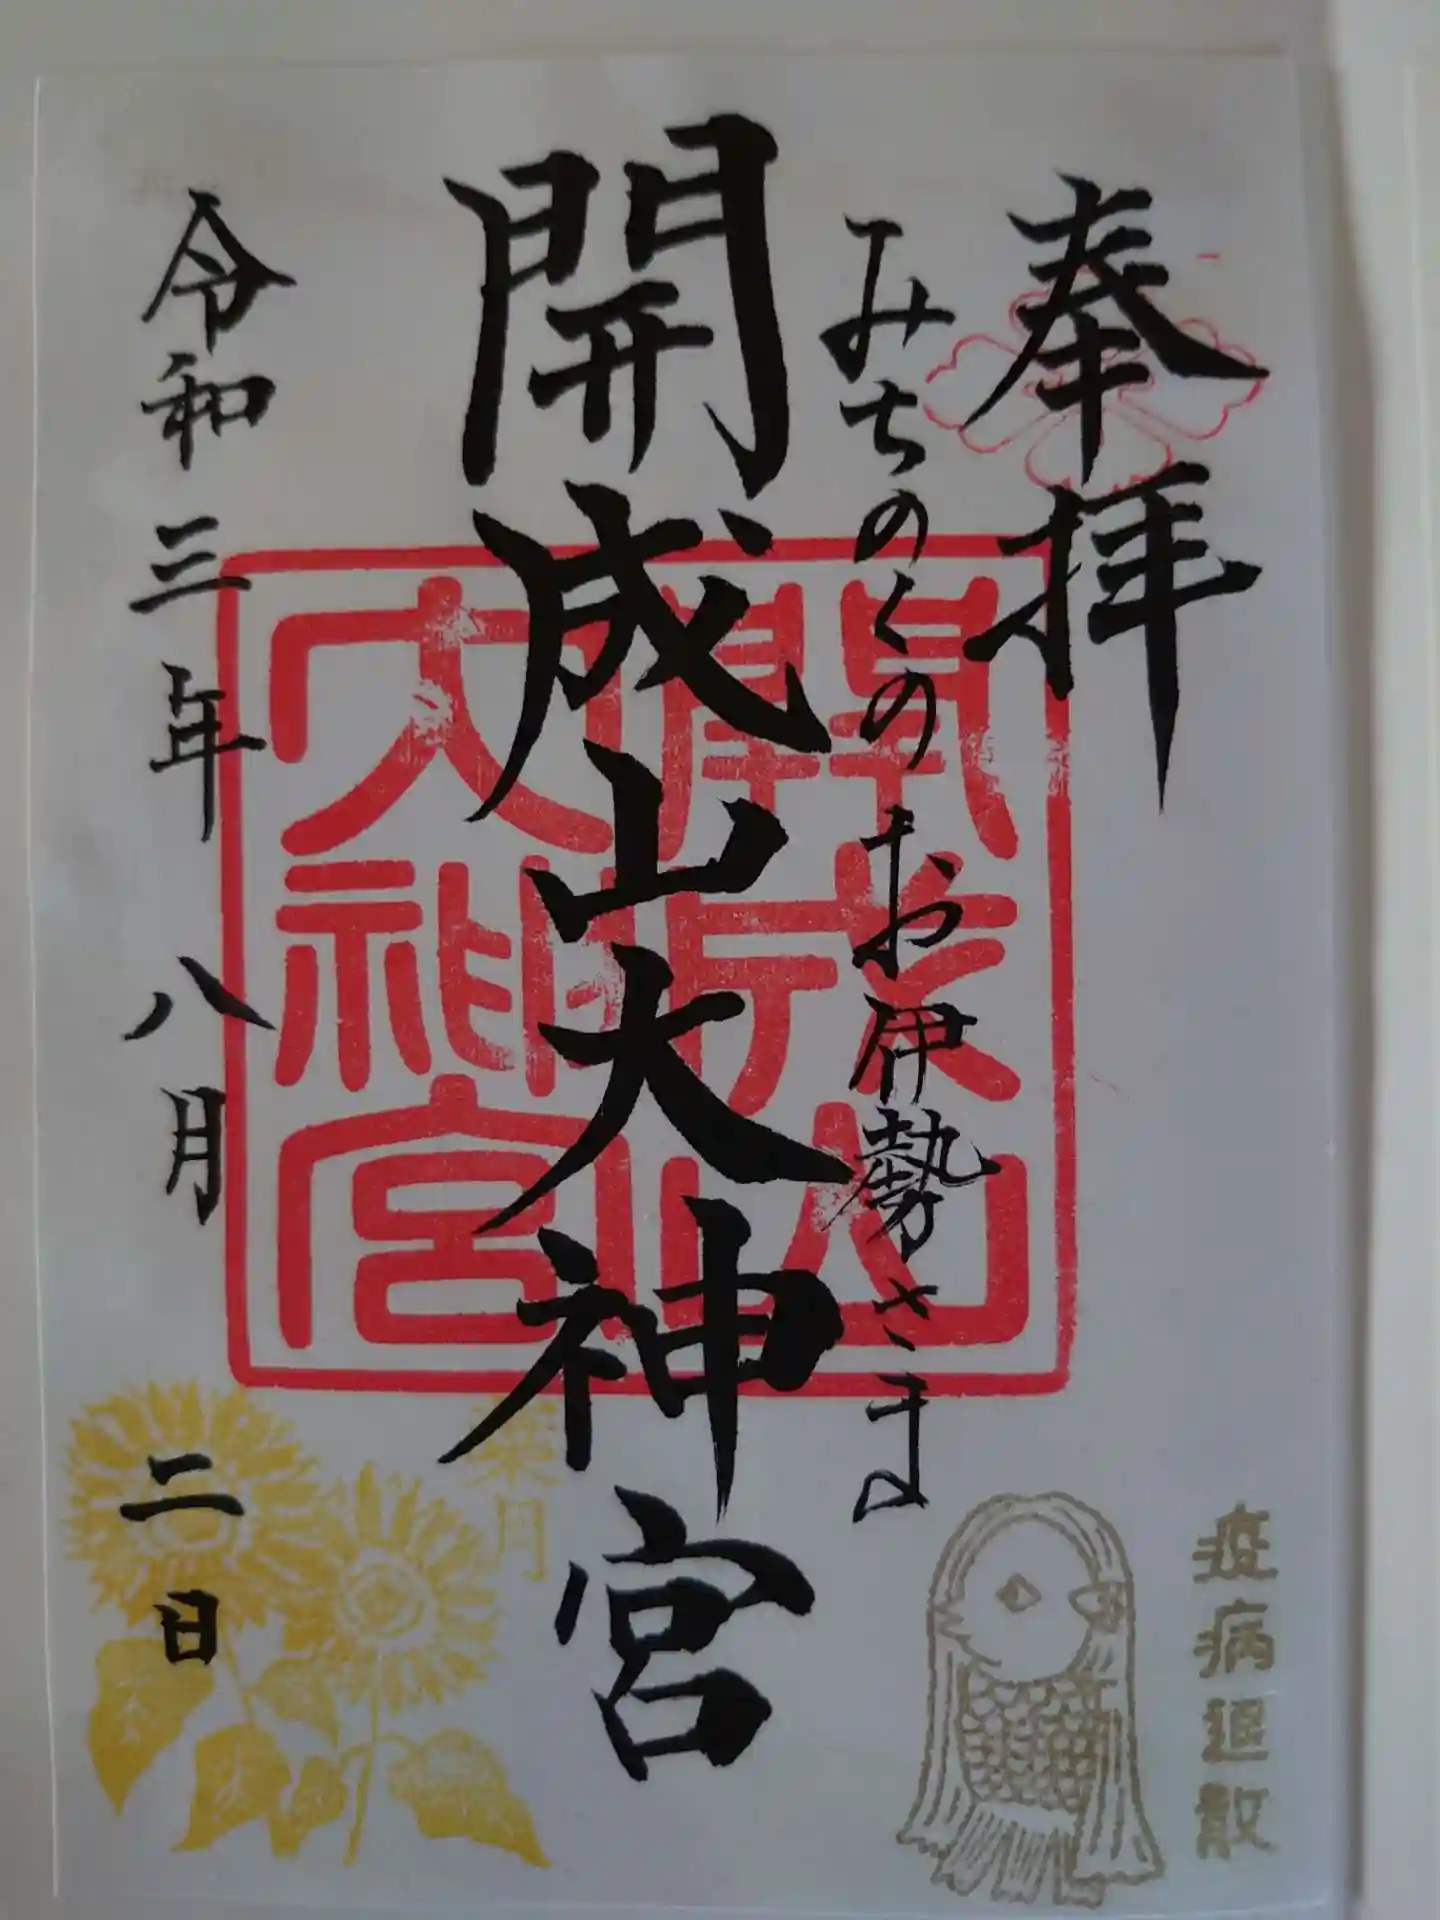 奉拝
みちのくのお伊勢さま
開成山大神宮
開成山
大神宮
令和三年八月二日
葉月
疫病退散